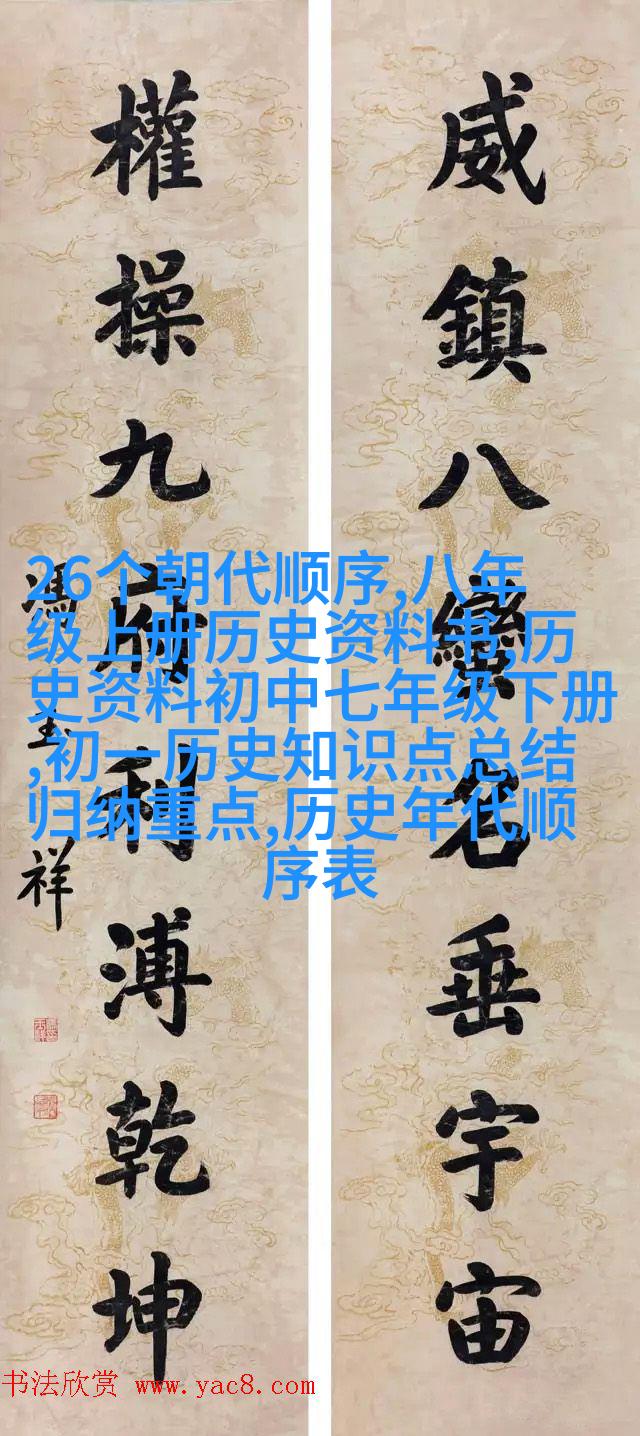 威鎮八蠻名垂宇宙
權操九府利溥乾坤
馮玉祥
26个朝代顺序,八年
级上册历史资料书,历
史资料初中七年级下册
,初一历史知识点总结
归纳重点,历史年代顺
序表
书法欣赏 www.yac8.com